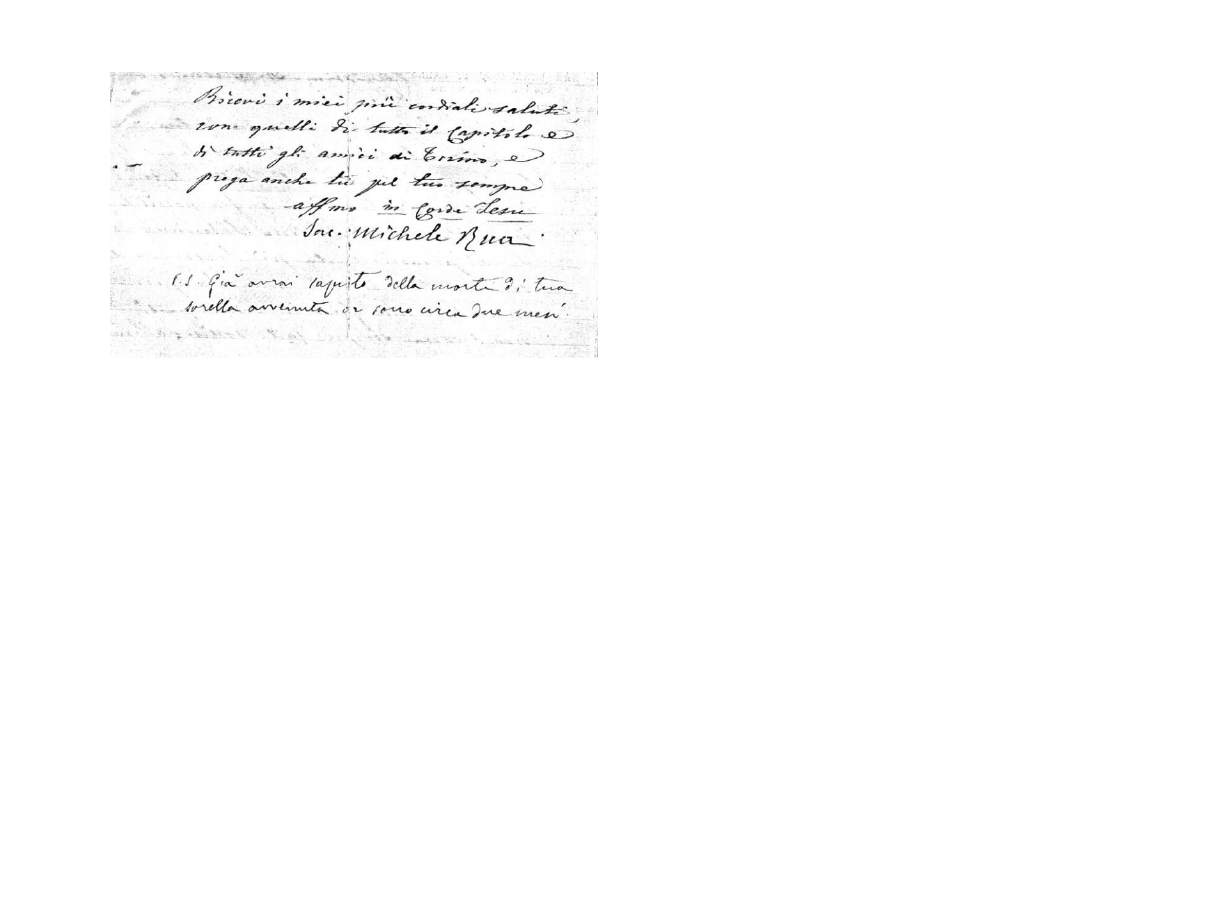 Ricevi i miei più cordiali saluti,
con quelli di tutto il Capitolo e
di tutti gli amici di Torino, e
prega anche tu pel tuo sempre
affmo in Corde Jesu
Sac. Michele Rua
P.S. Già avrai saputo della morte di tua
sorella avvenuta or sono circa due mesi.